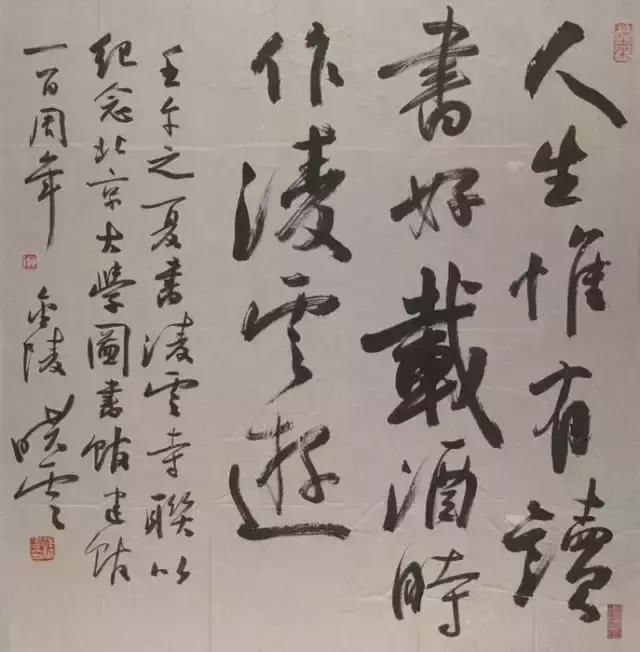 人生惟有讀
書好載酒時
作淩雲遊
壬午之夏書淩雲寺聯以
紀念北京大學圖書館建館
一百周年
金陵曉雲